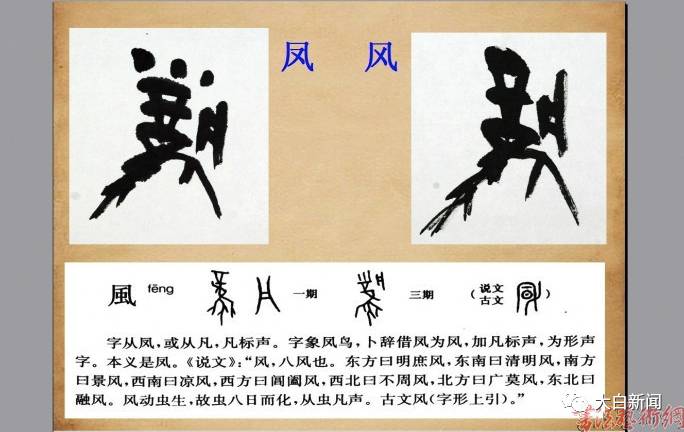 凤 风
風 fēng 一期 三期 (说文古文 )
字从凤，或从凡，凡标声。字象风鸟，卜辞借凤为风，加凡标声，为形声
字。本义是风。《说文》：“风，八风也。东方曰明庶风，东南曰清明风，南方
曰景风，西南曰凉风，西方曰阊阖风，西北曰不周风，北方曰广莫风，东北曰
融风。风动虫生，故虫八日而化，从虫凡声。古文风(字形上引)。”
大白新闻
书法艺术網